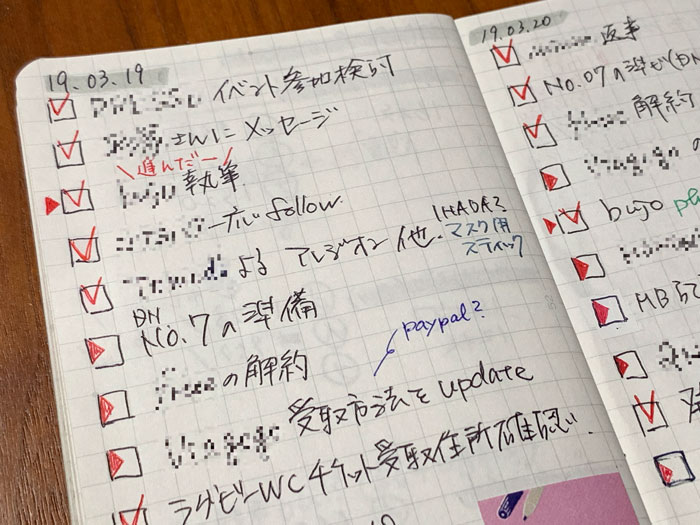 19.03.19
イベント参加検討
さんにメッセージ
進んだー
執筆
follow
よる アレジオン 他
IHADA?
マスク用
スティック
DN
No.7の準備
の解約
paypal?
受取方法を update
ラグビーWCチケット受取住所確認
19.03.20
返事
No.07の準備(DN
解約
の
bujo
MB